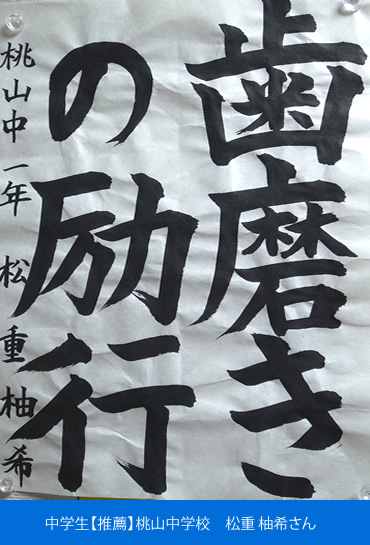 歯磨き
の励行
桃山中一年 松重柚希
中学生【推薦】桃山中学校　松重 柚希さん